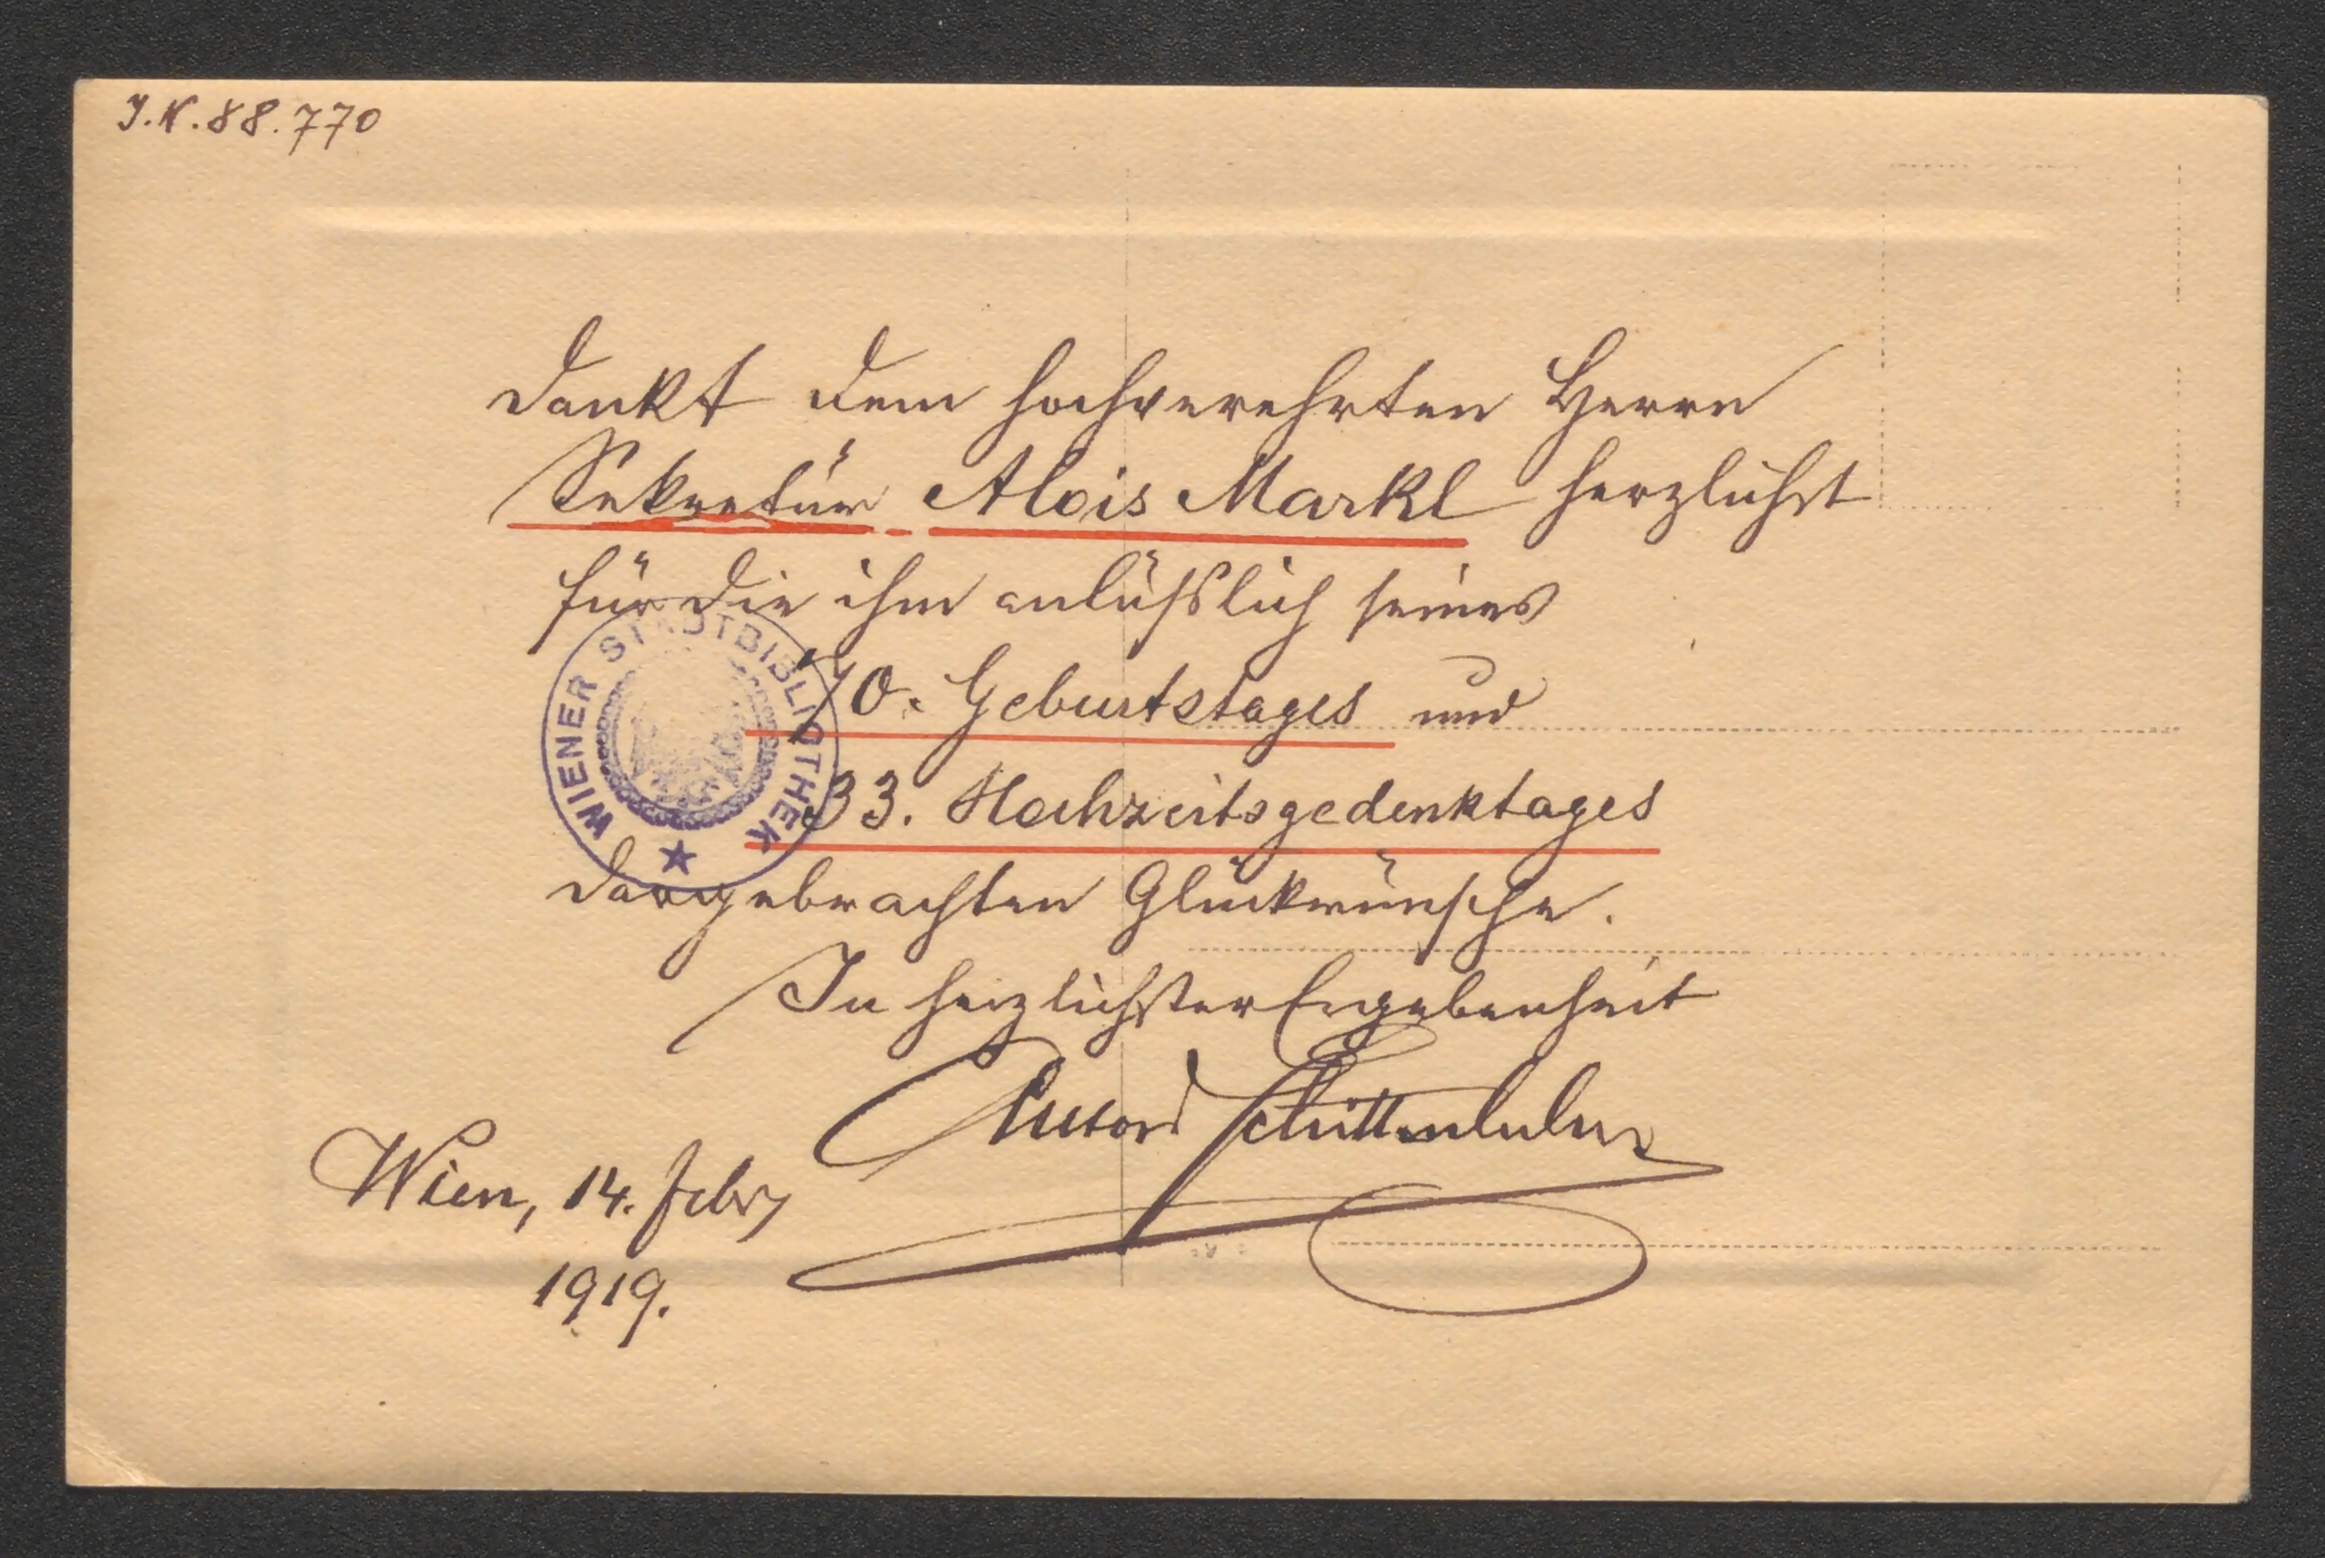 J.N.88.770
dankt dem hochverehrten Herrn
Sekretär Alois Markl herzlichst
für die ihm anläßlich seines
70. Geburtstages und
33. Hochzeitsgedenktages
dargebrachten Glückwünsche.
In herzlichster Ergebenheit
Wien, 14. Febr
1919.
WIENER STADTBIBLIOTHEK